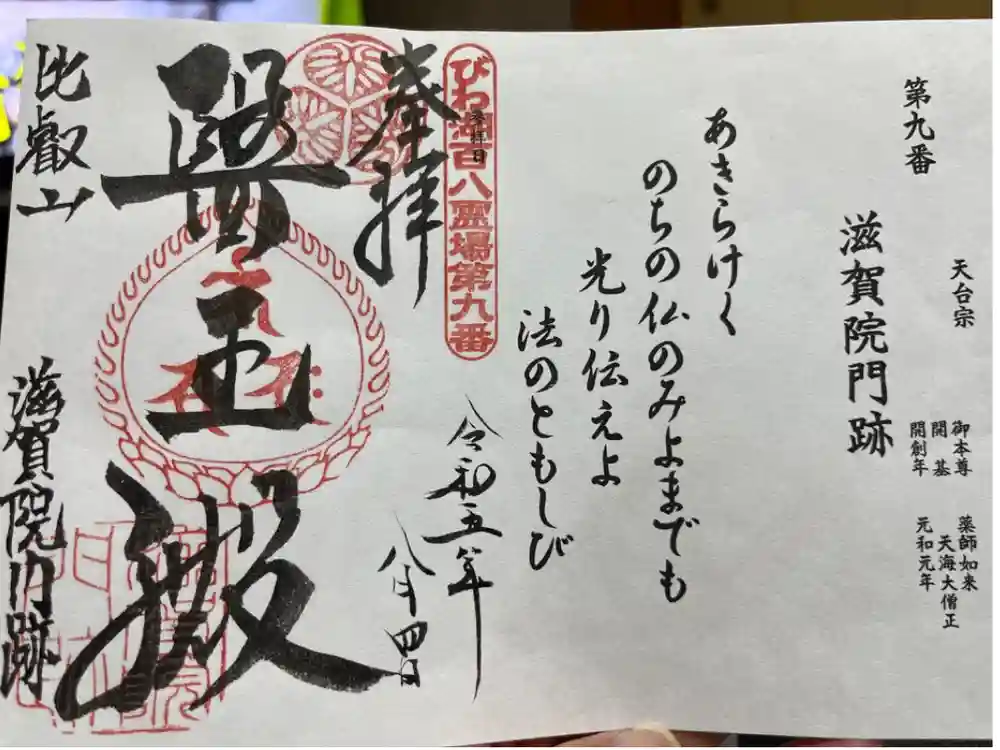 第九番
天台宗
滋賀院門跡
御本尊 薬師如来
開基 天海大僧正
開創年 元和元年
あきらけく
のちの仏のみよまでも
光り伝えよ
法のともしび
びわ湖百八霊場第九番
参拝日
奉拝
令和五年
八月四日
醫王殿
比叡山
滋賀院門跡